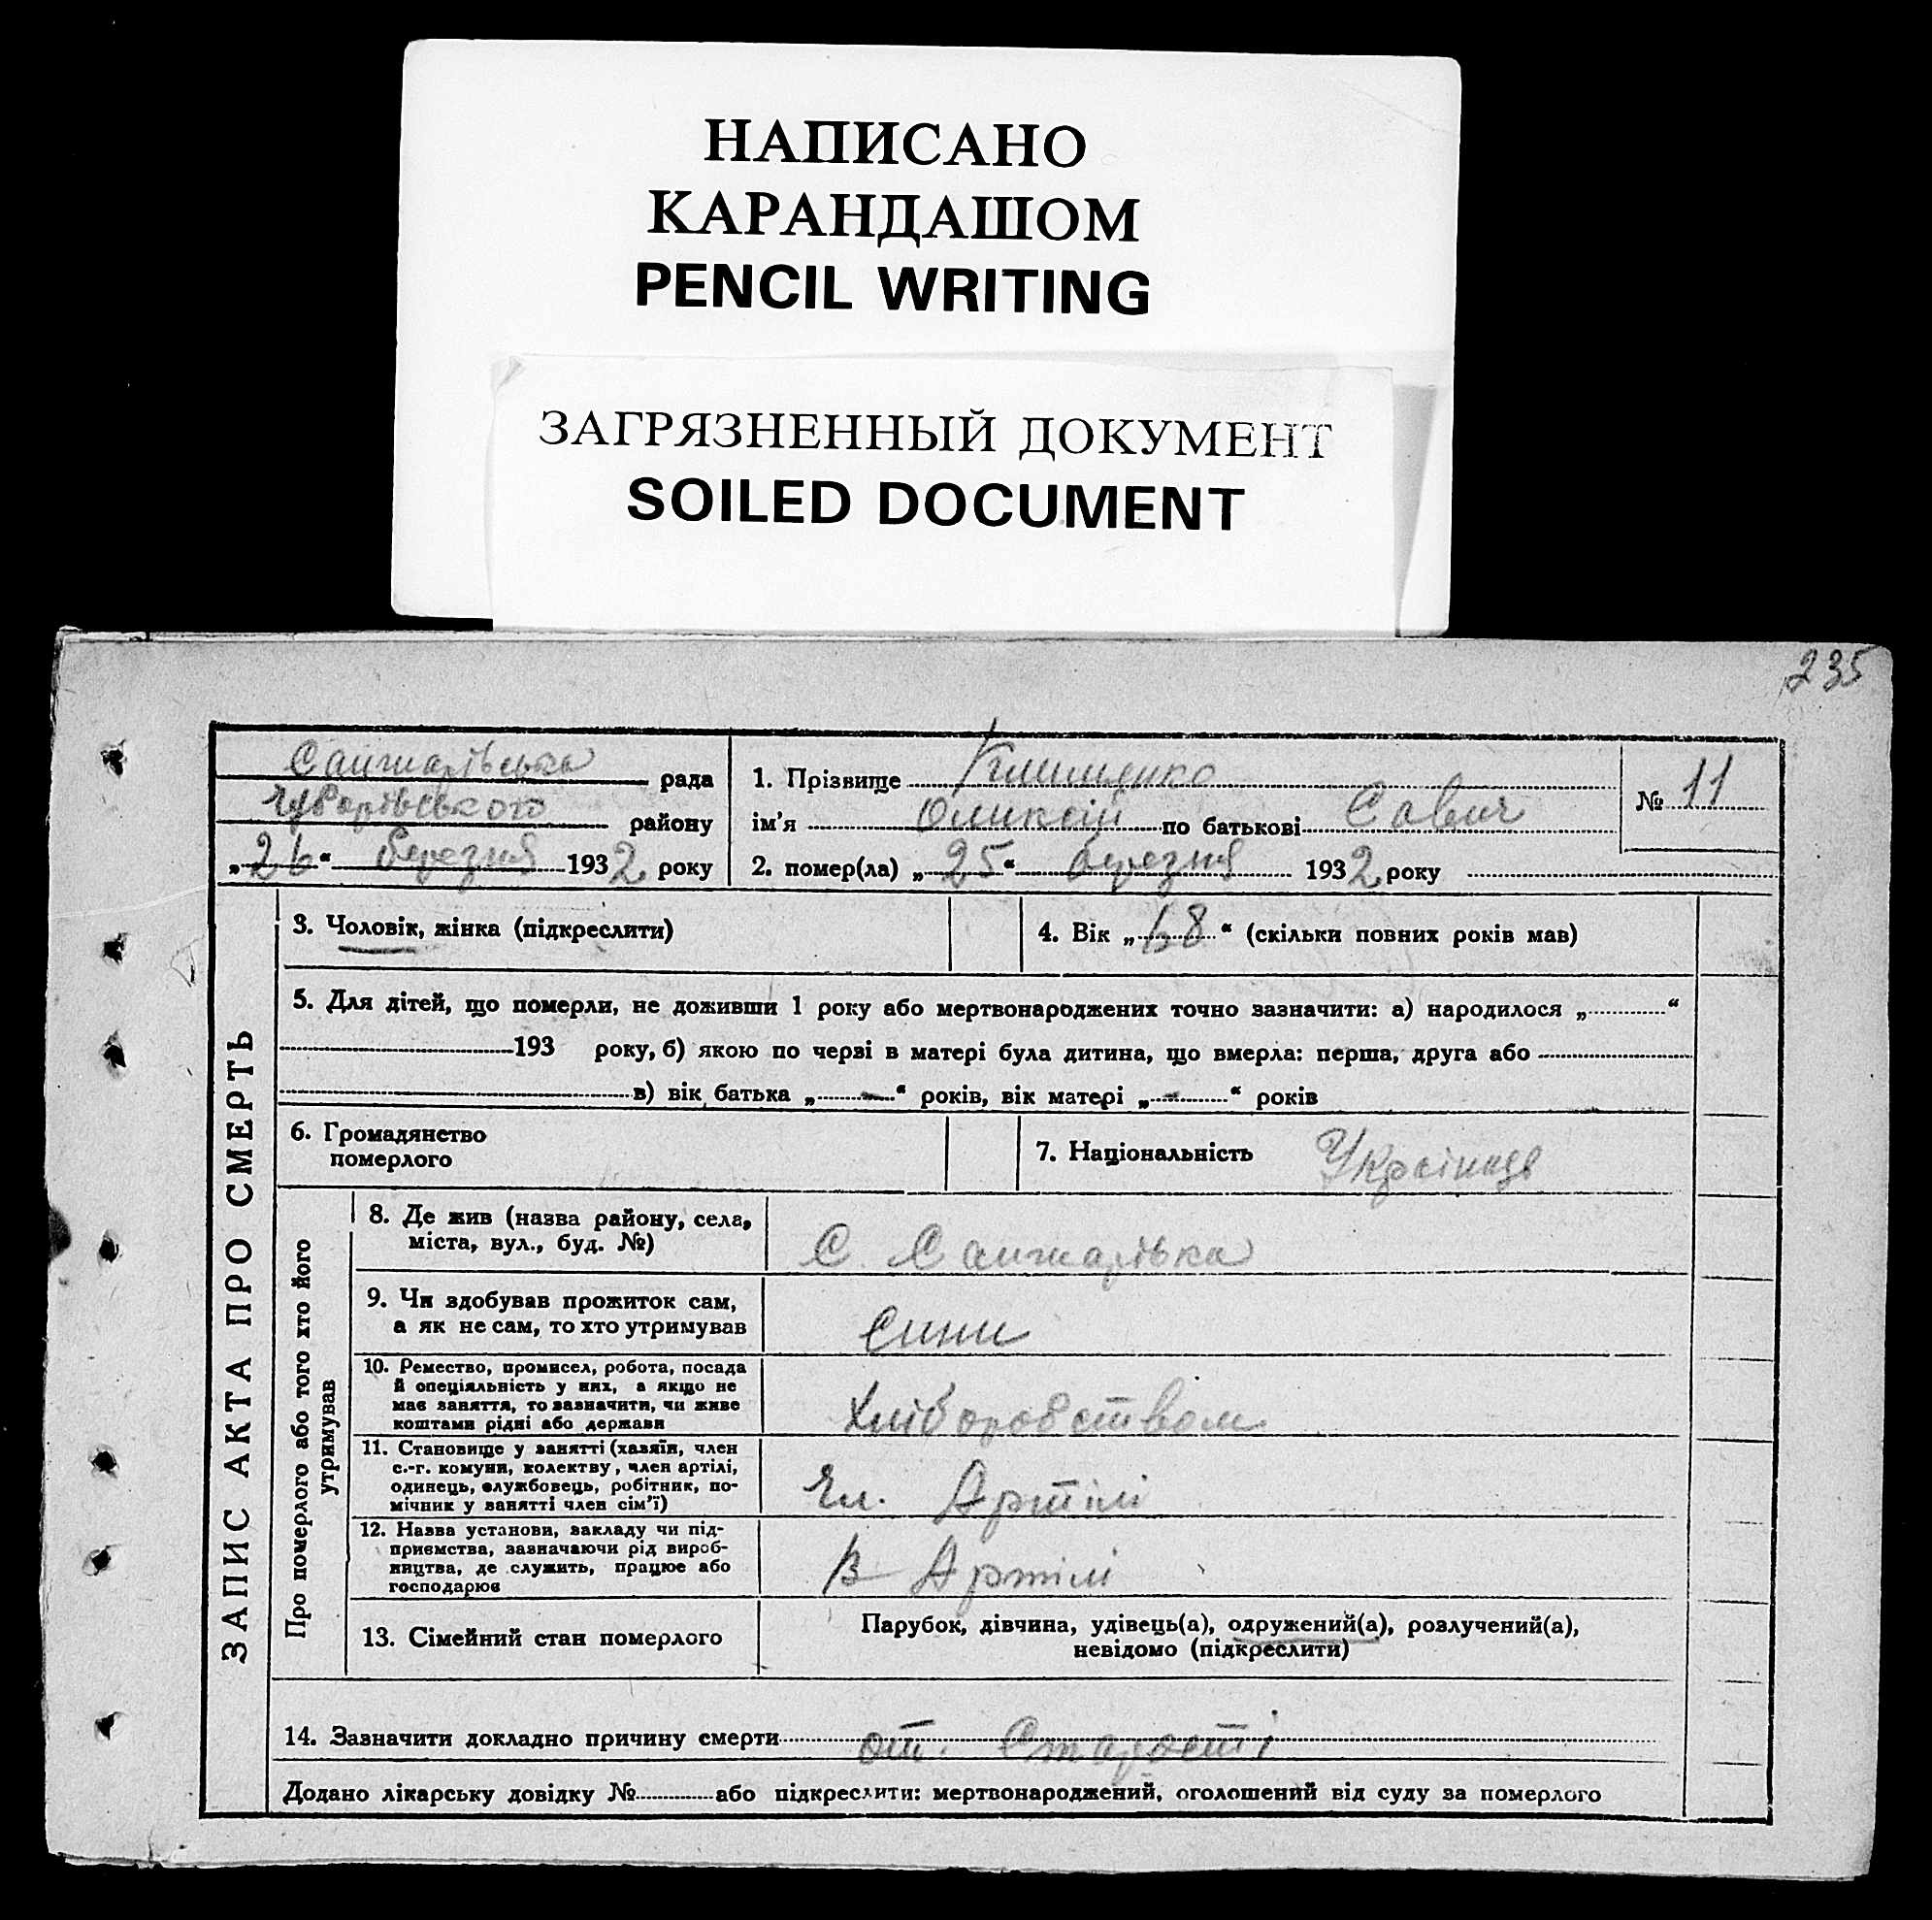 НАПИСАНО
КАРАНДАШОМ
PENCIL WRITING
ЗАГРЯЗНЕННЫЙ ДОКУМЕНТ
SOILED DOCUMENT
235
Санжарівська рада
району
„26“ березня 1932 року
1. Прізвище Климченко
ім'я Оликсій по батькові Савич
№ 11
2. помер(ла) „25“ березня 1932 року
ЗАПИС АКТА ПРО СМЕРТЬ
3. Чоловік, жінка (підкреслити)
4. Вік „68“ (скільки повних років мав)
5. Для дітей, що померли, не доживши 1 року або мертвонароджених точно зазначити: а) народилося „ “
193 року, б) якою по черві в матері була дитина, що вмерла: перша, друга або
в) вік батька „—“ років, вік матері „—“ років
6. Громадянство
померлого
7. Національність Українець
Про померлого або того хто його
утримував
8. Де жив (назва району, села,
міста, вул., буд. №)
С. Санжарівка
9. Чи здобував прожиток сам,
а як не сам, то хто утримував
Сини
10. Ремество, промисел, робота, посада
й спеціяльність у них, а якщо не
має заняття, то зазначити, чи живе
коштами рідні або держави
Хліборобством
11. Становище у занятті (хазяїн, член
с.-г. комуни, колектву, член артілі,
одинець, службовець, робітник, по-
мічник у занятті член сім'ї)
Чл. Артілі
12. Назва установи, закладу чи під-
приємства, зазначаючи рід вироб-
ництва, де служить, працює або
господарює
В Артілі
13. Сімейний стан померлого
Парубок, дівчина, удівець(а), одружений(а), розлучений(а),
невідомо (підкреслити)
14. Зазначити докладно причину смерти от. Старості
Додано лікарську довідку № або підкреслити: мертвонароджений, оголошений від суду за померлого